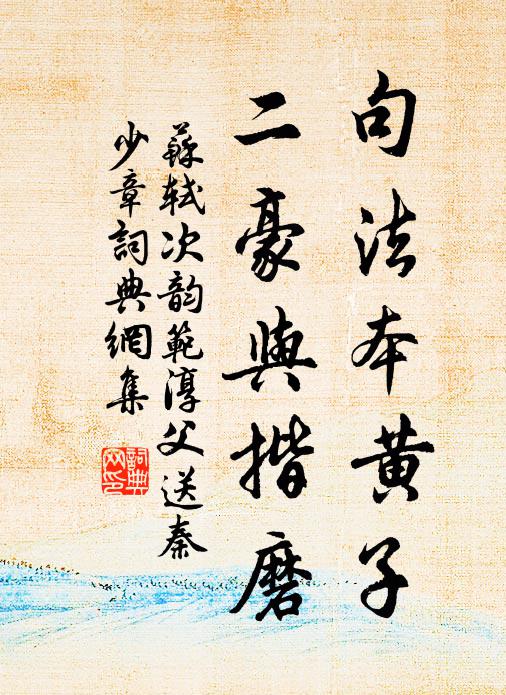 句法本黄子
二豪與揩磨
蘇軾次韵範淳父送秦
少章詞典網集
詞典網印